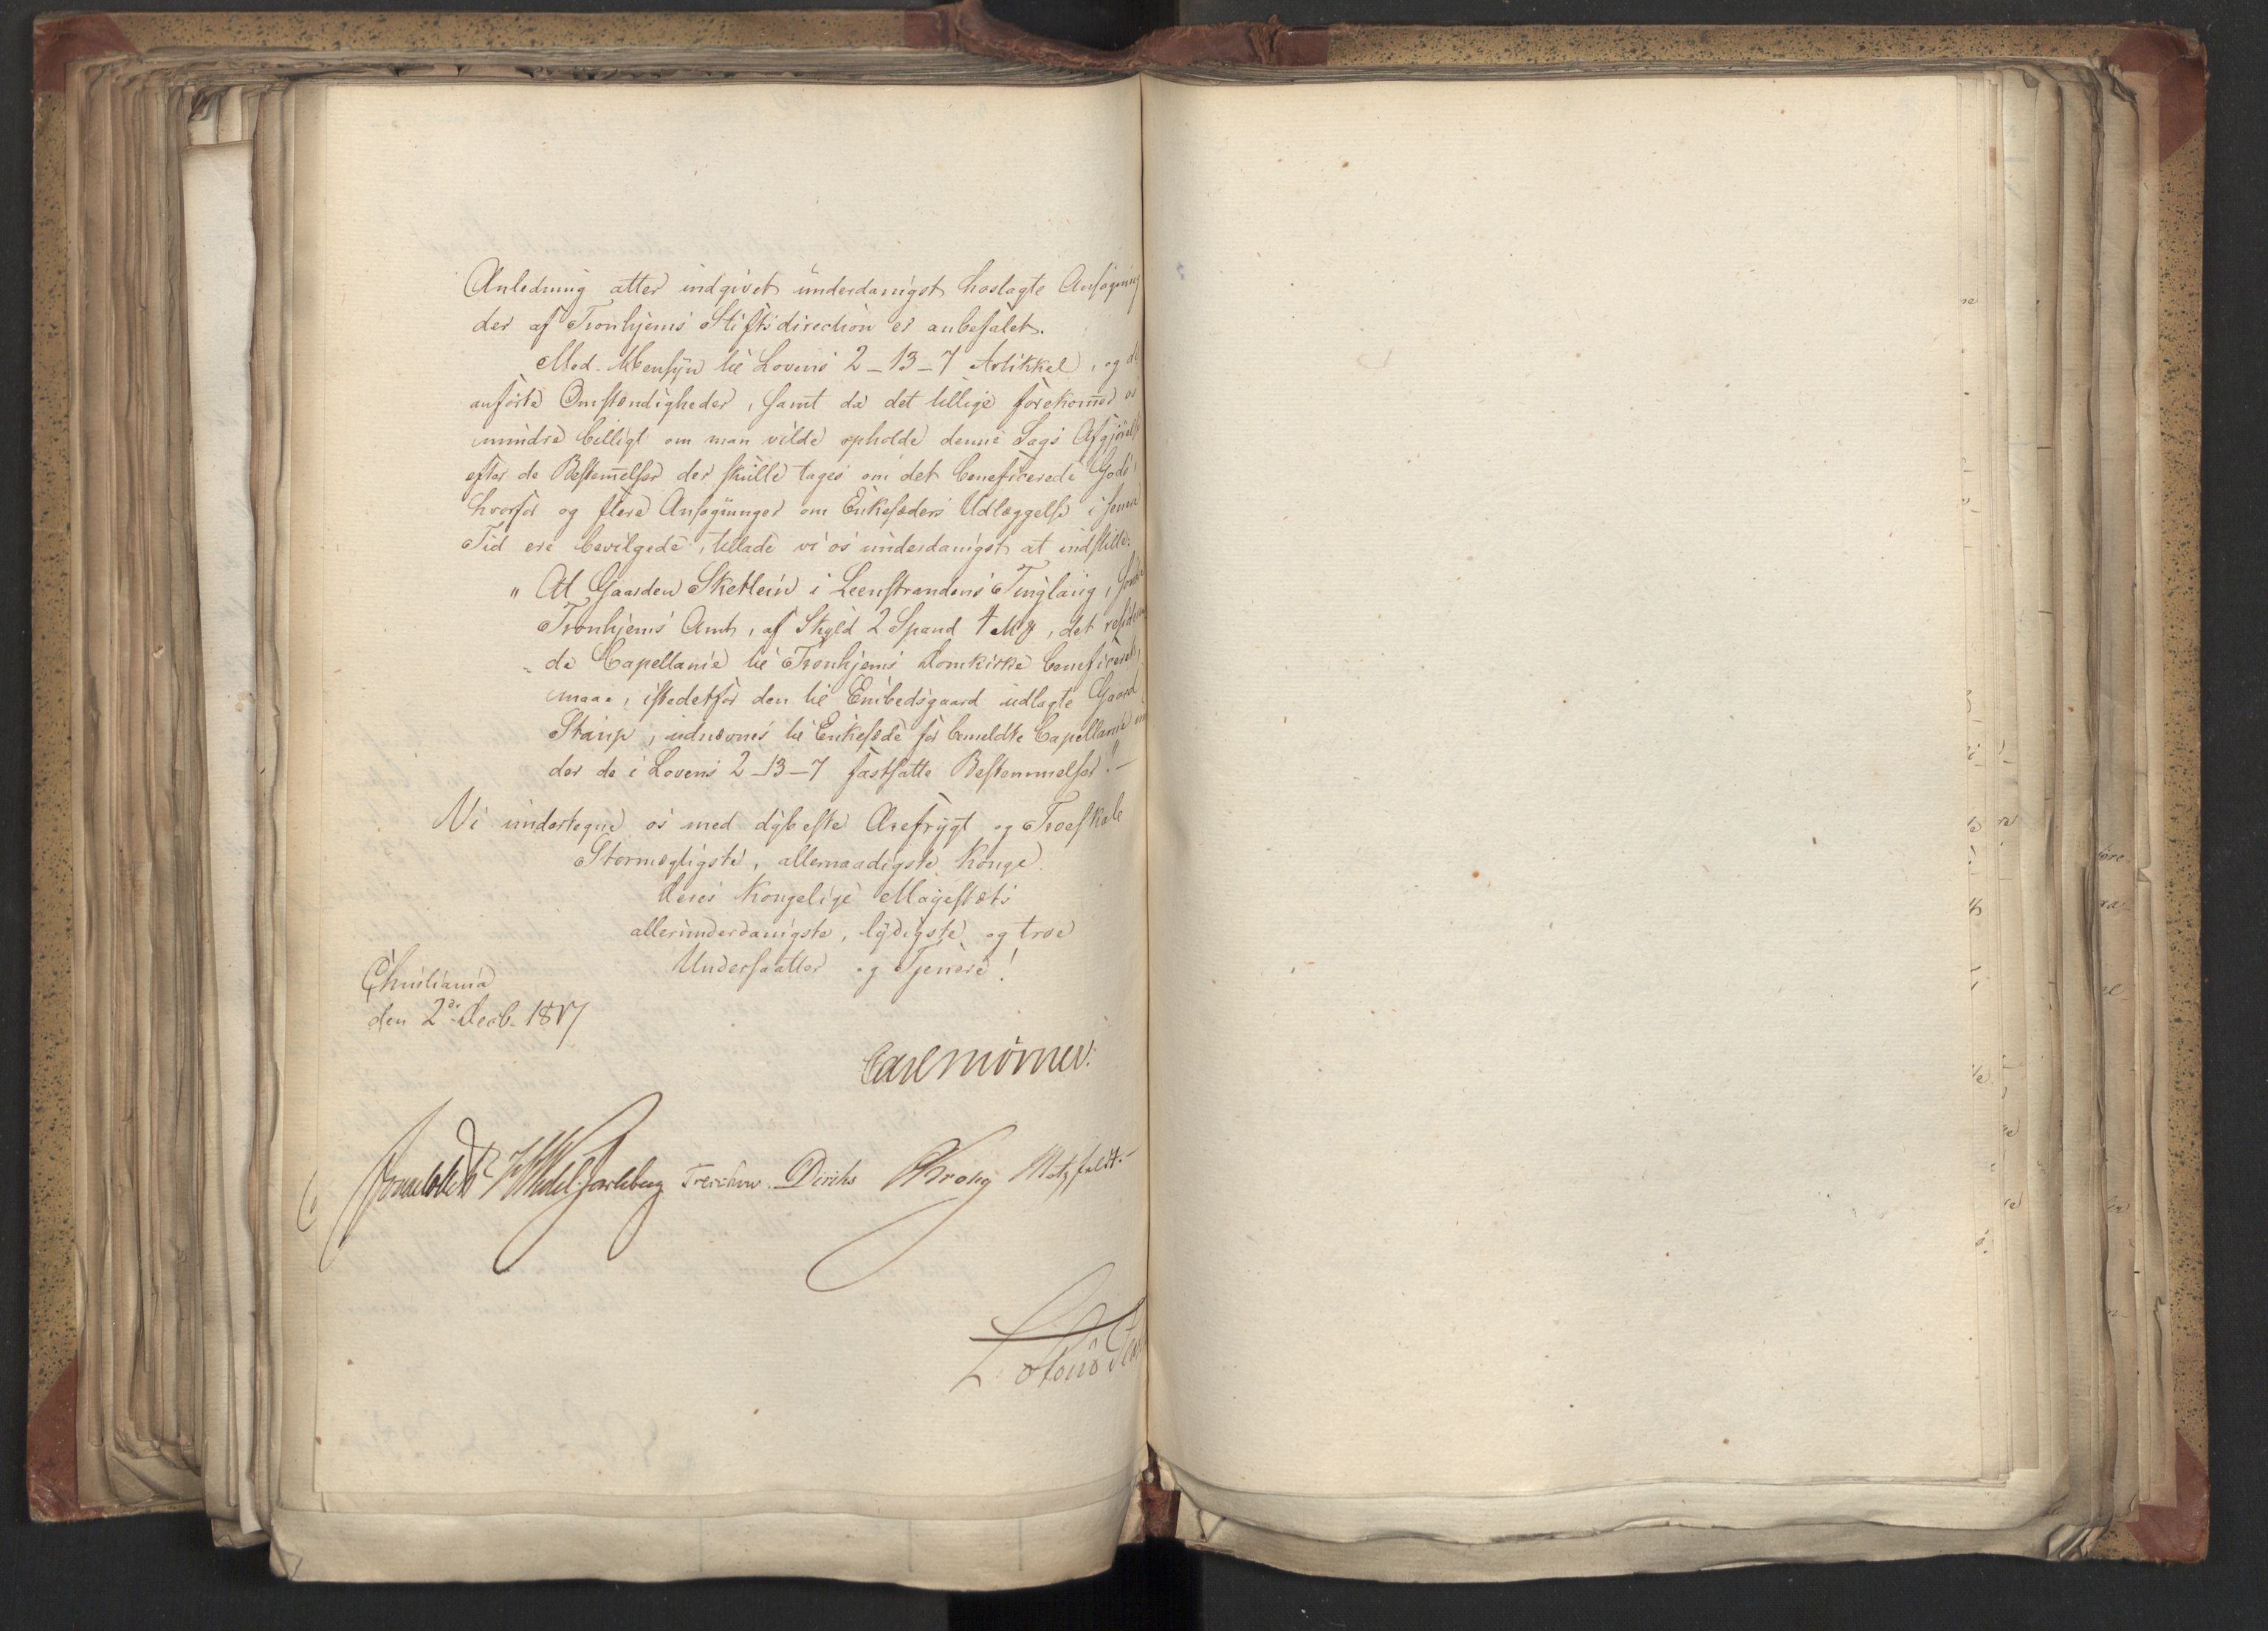 Anledning atter indgivet underdanigst hoslagte Ansøgning
der af Tronhjems Stiftsdirection er anbefalet.
Med Hensyn til Lovens 2-13-7 Artikkel, og de
anførte Omstændigheder, samt da det tillige forekommer os
mindre billigt om man vilde opholde denne Sags Afgjørelse
efter de Bestemelser der skulle tages om det beneficerede Gods,
hvorfor og flere Ansøgninger om Enkesæders Udlæggelse i senere
Tid ere bevilgede, tillade vi os underdanigst at indstille:
" At Gaarden Sketlein i Leenstrandens Tinglaug, Søndre
Tronhjems Amt, af Skyld 2 Spand 1 Mg, det residere
de Capellanie til Tronhjems Domkirke beneficeret,
maae, istedetfor den til Embedsgaard udlagte Gaard
Stavne, udnævnes til Enkesæde for bemeldte Capellanie un
der de i Lovens 2-13-7 fastsatte Bestemmelser." -
Vi undertegne os med dybeste Ærefrygt og Troeskab
Stormægtigste, allernaadigste Konge
Deres Kongelige Majestæts
allerunderdanigste, lydigste og troe
Undersaatter og Tjenere!
Christiania
den 2de Decb. 1817
Carl Mörner.
Sommerhielm Wedel Jarlsberg Treschow Diriks CKrohg Motzfeldt.